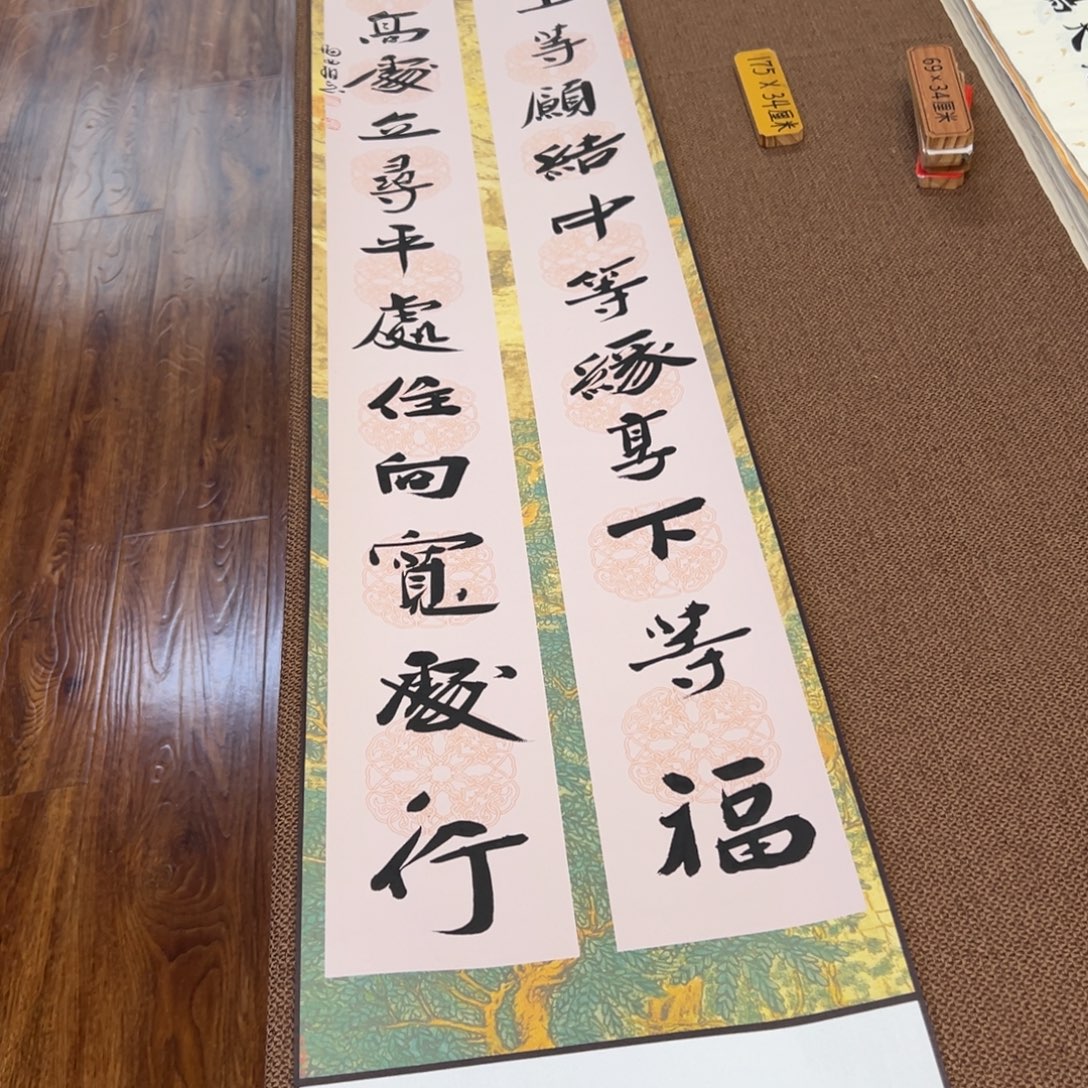 上等願結中等緣享下等福
高處立尋平處住向寬處行
175×34厘米
69×34厘米